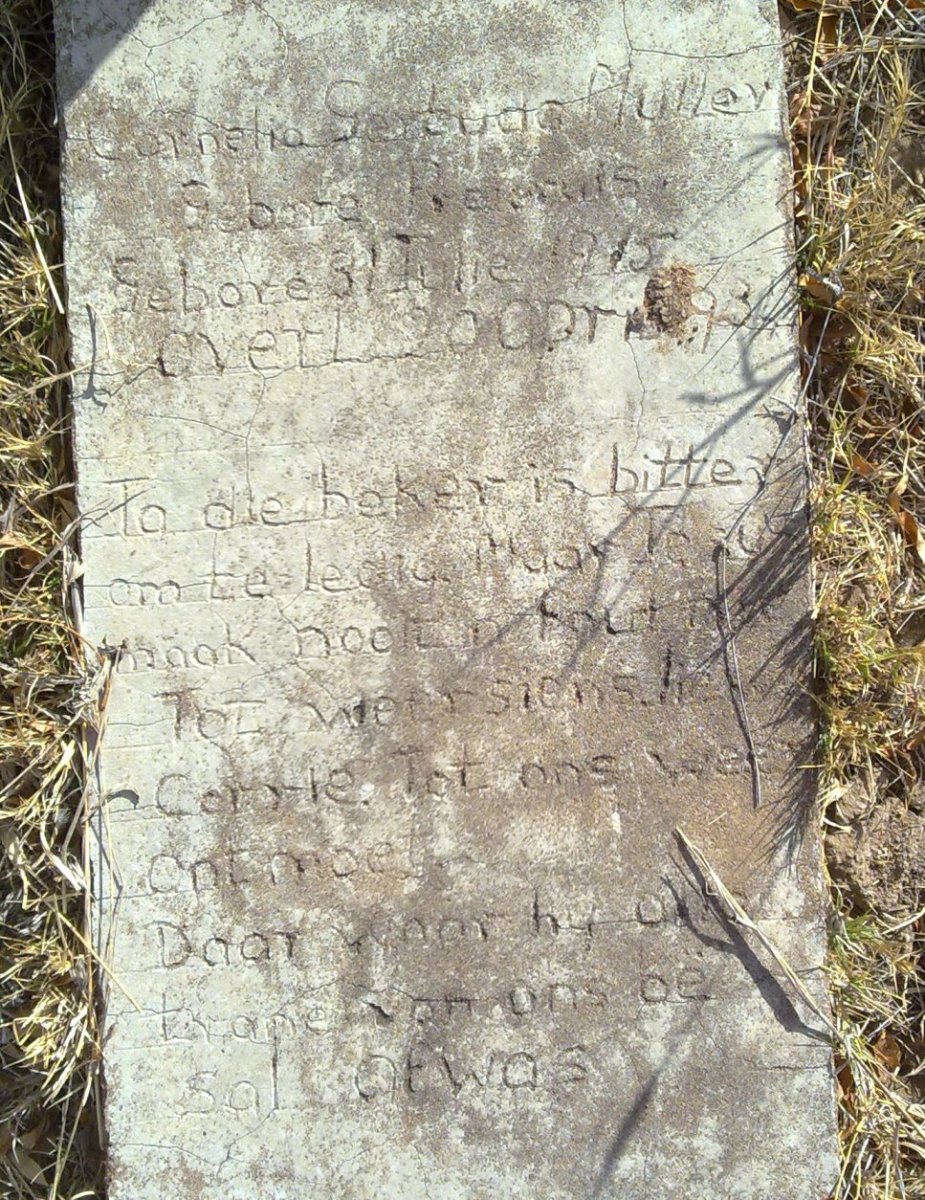 Cornelia Gertruda Muller
Gebore
Gebore 31 Julie 1915
overl 20 Apri
Ja die beker is bitter
om te ledig. Maar Jesus
maak nooit n fout n
Tot weersiens. lie
Corrie. Tot ons weer
ontmoet
Daar waar hy al
trane van ons oë
sal afwas